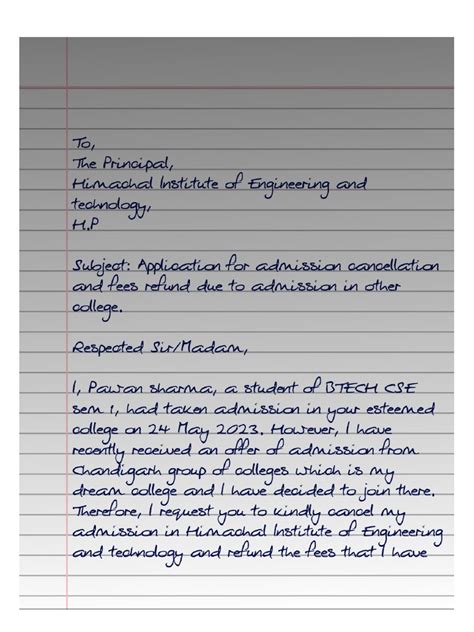 To,
The Principal,
Himachal Institute of Engineering and
technology,
H.P
Subject: Application for admission cancellation
and fees refund due to admission in other
college.
Respected Sir/Madam,
I, Pawan sharma, a student of BTECH CSE
sem 1, had taken admission in your esteemed
college on 24 May 2023. However, I have
recently received an offer of admission from
Chandigarh group of colleges which is my
dream college and I have decided to join there.
Therefore, I request you to kindly cancel my
admission in Himachal Institute of Engineering
and technology and refund the fees that I have